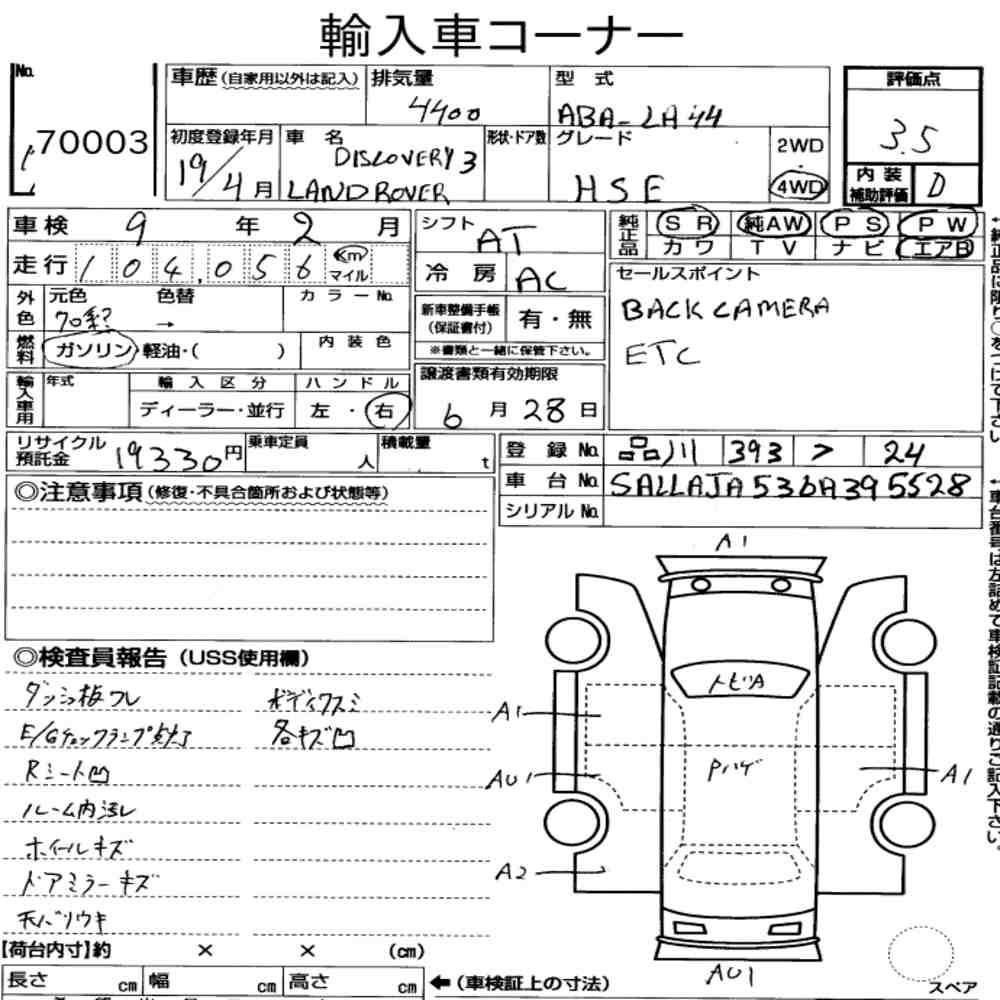 輸入車コーナー
No.
70003
車歴(自家用以外は記入)
排気量
4400
型式
ABA-LA44
評価点
3.5
初度登録年月
19/4月
車名
DISCOVERY 3
LANDROVER
形状・ドア数
グレード
HSE
2WD
4WD
内装
補助評価
D
車検 9年2月
走行 104,056 km
マイル
シフト
AT
冷房
AC
純正品
SR 純AW PS PW
カワ TV ナビ エアB
セールスポイント
BACK CAMERA
ETC
外色
元色
色替
カラーNo.
→
燃料
ガソリン・軽油・( )
内装色
新車整備手帳
(保証書付)
有・無
※書類と一緒に保管下さい。
輸入車用
年式
輸入区分
ディーラー・並行
ハンドル
左・右
譲渡書類有効期限
6月28日
リサイクル
預託金
19330円
乗車定員
人
積載量
t
登録No.
品川 393 24
車台No.
SALLAJA536A395528
シリアルNo.
◎注意事項(修復・不具合箇所および状態等)
◎検査員報告(USS使用欄)
E/Gチェックランプ点灯
Rシート凹
ルーム内汚レ
ホイールキズ
ドアミラーキズ
各キズ凹
A1
トビリA
A1
AU1
Pハゲ
A1
A2
AU1
スペア
【荷台内寸】約 × × (cm)
長さ cm 幅 cm 高さ cm
←(車検証上の寸法)
←純正品に限り○をつけて下さい
←車台番号は左詰めで車検証記載の通りご記入下さい。